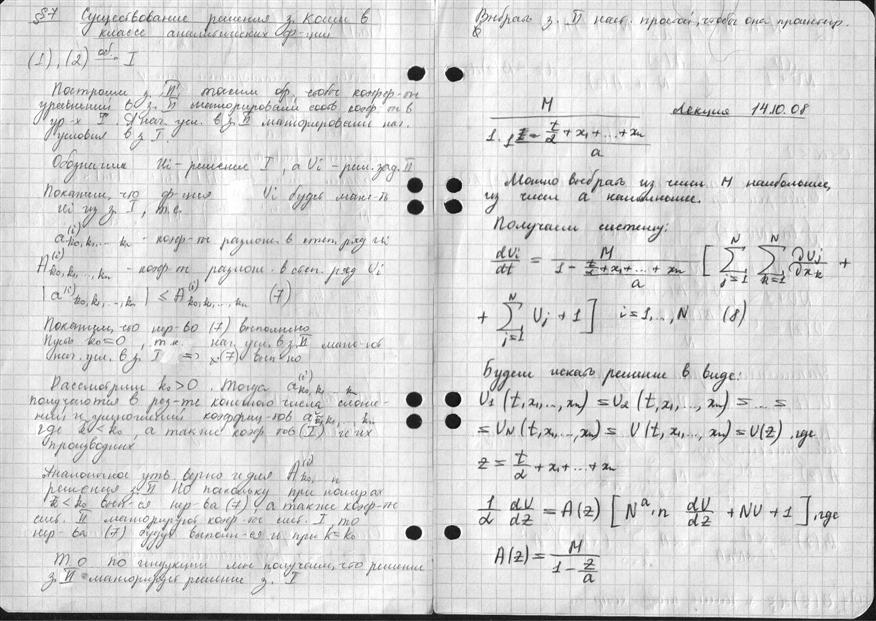 §7 Существование решения з. Коши в
классе аналитических ф-ций
(1), (2) об. I
Построим з. II таким обр, чтобы коэф-ты
уравнений в з. II мажорировали соотв. коэф-ты в
ур-х I. А нач. усл. в з. II мажорировали нач.
условия в з I.
Обозначим Ui - решение I, а Vi - реш. зад. II
Покажем, что ф-ция Vi будет мажор-ть
Ui из з. I, т.е.
a^{(i)}_{k0, k1, ... kn} - коэф-ты разлож. в степ. ряд Ui
A^{(i)}_{k0, k1, ..., kn} - коэф-ты разлож. в степ. ряд Vi
|a^{(i)}_{k0, k1, ..., kn}| ≤ A^{(i)}_{k0, k1, ..., kn} (7)
Покажем, что нер-во (7) выполнено
Пусть k0=0, т.к. нач. усл. в з. II мажор-ют
нач. усл. в з. I => (7) вып-но
Рассмотрим k0>0. Тогда a^{(i)}_{k0, k1, ... kn}
получаются в рез-те конечного числа сложе-
ний и умножений коэффиц-тов a_{k0, k1, ... kn}
где k0<k0, а также коэф-тов (I) и их
производных
Аналогичное утв. верно и для A^{(i)}_{k0,...}
решения з. II Но поскольку при номерах
k<k0 вып-ся нер-ва (7) а также коэф-ты
сист. II мажорируют коэф-ты сист. I то
нер-ва (7) будут выполн-ся и при k=k0
Т.О по индукции мы получаем, что решение
з. II мажорирует решение з. I
Выбрать з. II наст. простой, чтобы она проинтегр.
M / (1 - (t/α + x1 + ... + xn)/a) Лекция 14.10.08
Можно выбрать из числ M наибольшее,
из числ a наименьшее.
Получаем систему:
dVi/dt = M / (1 - (t/α + x1 + ... + xn)/a) [ Σ_{j=1}^{N} Σ_{k=1}^{N} ∂Vj/∂xk +
+ Σ_{j=1}^{N} Vj + 1 ] i=1,..,N (8)
Будем искать решение в виде:
V1 (t, x1, ..., xn) = V2 (t, x1, ..., xn) = ... =
= VN (t, x1, ..., xn) = V(t, x1, ..., xn) = V(z), где
z = t/α + x1 + ... + xn
1/α dV/dz = A(z) [ N^a·n dV/dz + NV + 1 ], где
A(z) = M / (1 - z/a)